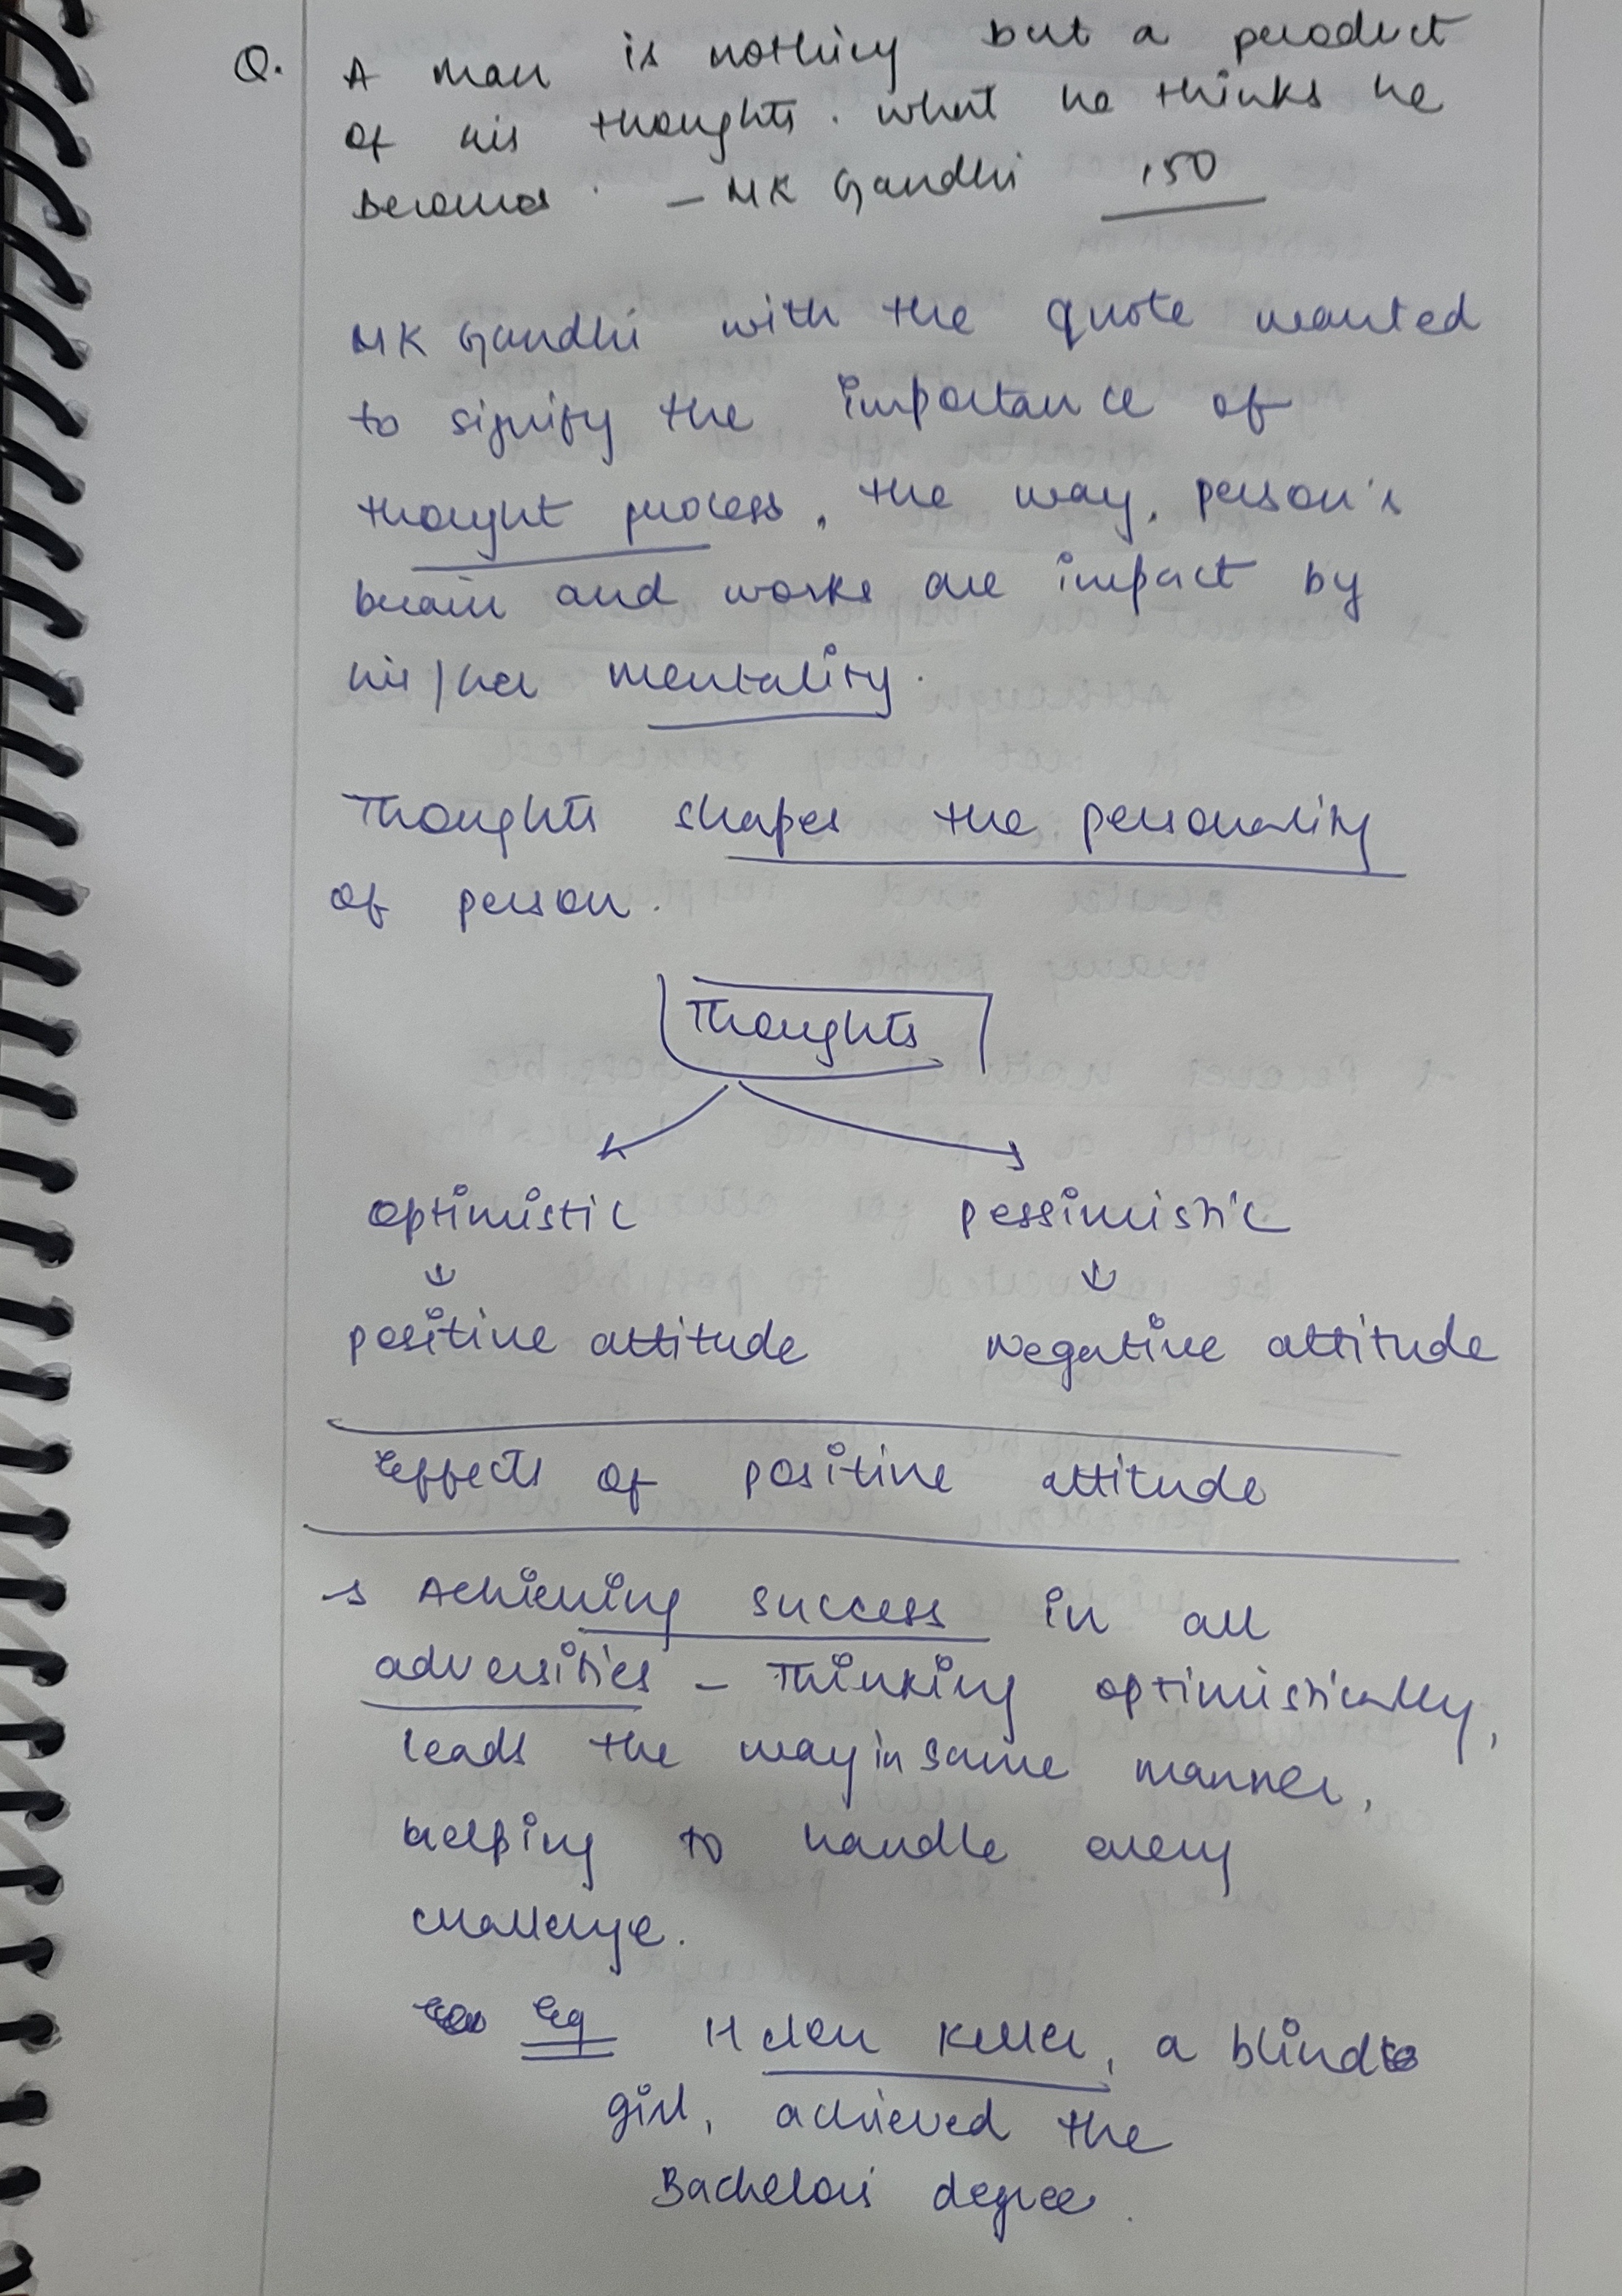 Q. A man is nothing but a product
of his thoughts. what he thinks he
becomes. - MK Gandhi 150
MK Gandhi with the quote wanted
to signify the importance of
thought process, the way, person's
brain and works are impact by
his/her mentality.
Thoughts shapes the personality
of person.
Thoughts
optimistic pessimistic
positive attitude Negative attitude
Effects of positive attitude
→ Achieving success in all
adversities - Thinking optimistically,
leads the way in same manner,
helping to handle every
challenge.
Eg Helen Keller, a blind
girl, achieved the
Bachelors degree.